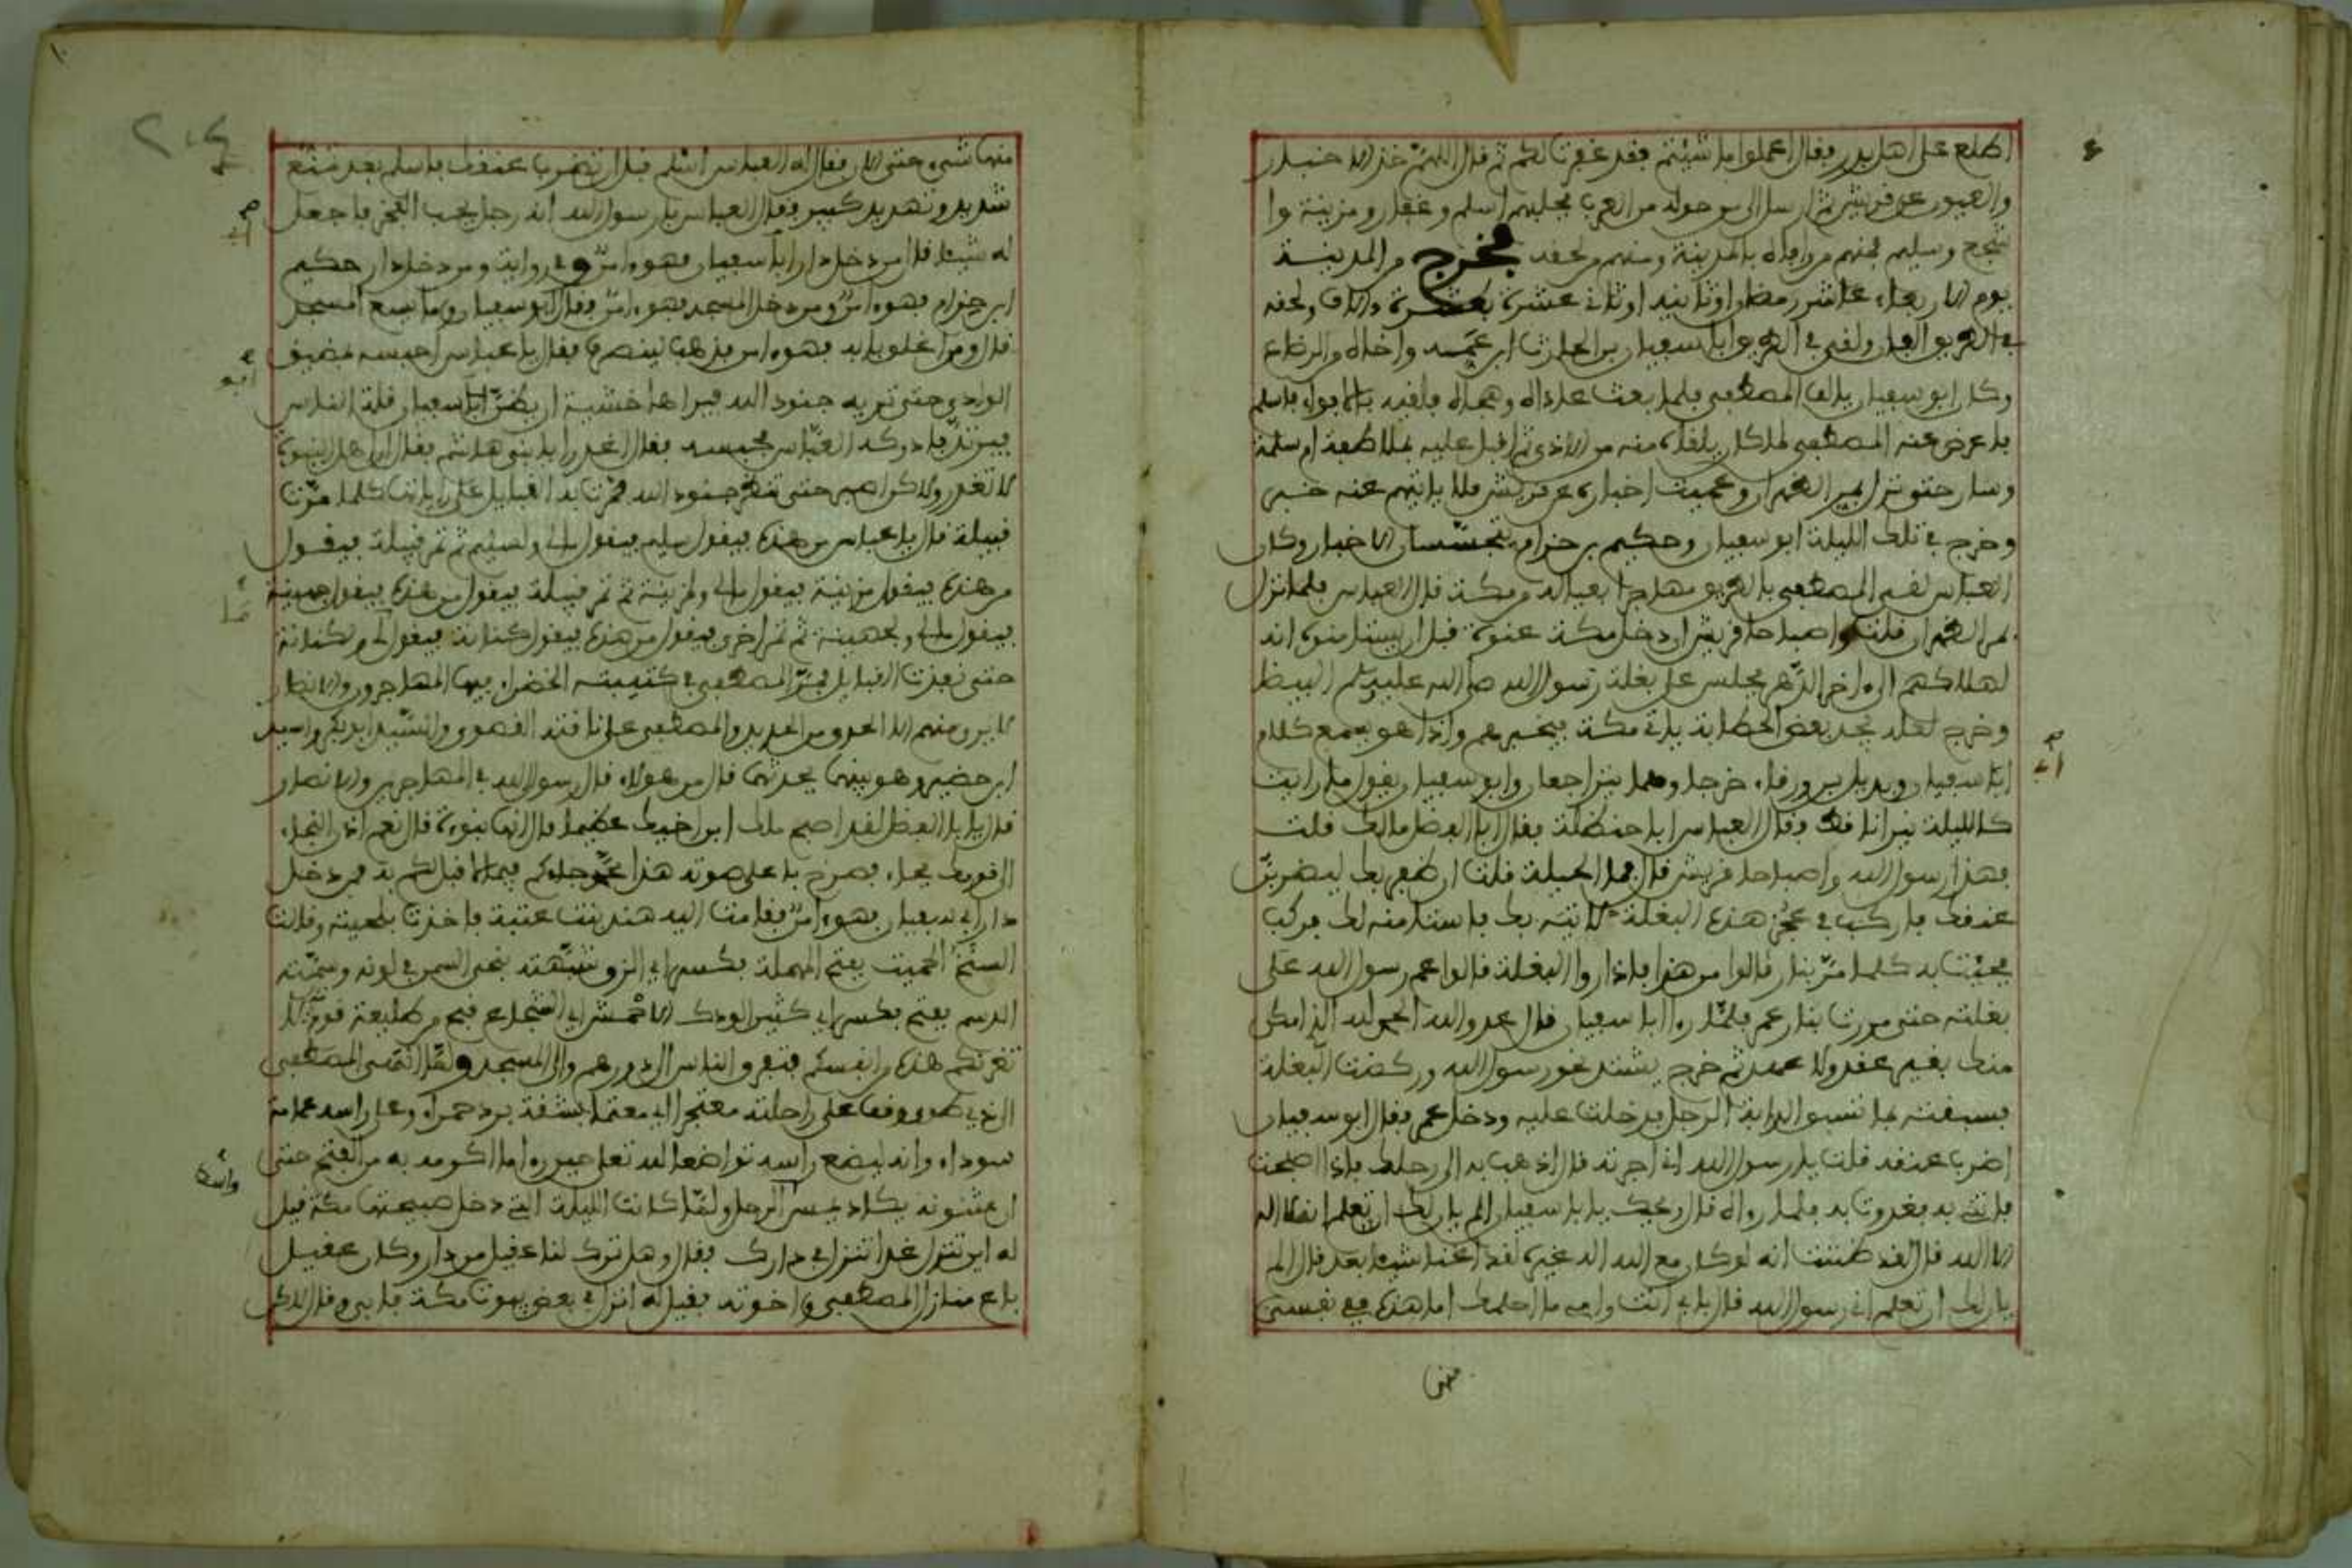 اطلع على اهل بدر فقال اعملوا ما شئتم فقد غفرت لكم ثم قال اللهم خذ الاخبار
والعيون عن قريش ثم ارسل الى من حوله من العرب فجلبهم اسلم وغفار ومزينة وا
شجع وسليم فمنهم من وافاه بالمدينة ومنهم من لحقه فخرج من المدينة
يوم الاربعاء عاشر رمضان او ثانيه او ثاني عشره بعشرة ءالاف ولحقه
في الطريق الفان ولقي في الطريق ابا سفيان بن الحارث ابن عمه واخاه من الرضاع
وكان ابو سفيان يالف المصطفى فلما بعث عاداه وهجاه فلقيه بالابواء فاسلم
فاعرض عنه المصطفى لما كان يلقاه منه من الاذى ثم اقبل عليه بملاطفة ام سلمة
وسار حتى نزل بمر الظهران وعميت اخباره عن قريش فلا ياتيهم عنه خبر
وخرج في تلك الليلة ابو سفيان وحكيم بن حزام يتحسسان الاخبار وكان
العباس لقي المصطفى بالطريق مهاجرا بعياله من مكة قال العباس فلما نزل
بمر الظهران قلت واصباحا قريش ان دخل مكة عنوة قبل ان يستامنوه انه
لهلاكهم الى ءاخر الدهر فجلس على بغلة رسول الله صلى الله عليه وسلم البيضا
وخرج لعله يجد بعض الحطابة ياتي مكة فيخبرهم واذا هو يسمع كلام
ابا سفيان وبديل بن ورقاء خرجا وهما يتراجعان وابو سفيان يقول ما رايت
كالليلة نيرانا قط وقال العباس ابا حنظلة فقال ابا الفضل مالك قلت
هذا رسول الله واصباحا قريش قال فما الحيلة قلت ان ظفر بك ليضربن
عنقك فاركب في عجز هذه البغلة لاتيه بك فاستامنه لك فركب
فجئت به كلما مر بنار قالوا من هذا فاذا راوا البغلة قالوا عم رسول الله على
بغلته حتى مررت بنار عمر فلما رءا ابا سفيان قال عدو الله الحمد لله الذي امكن
منك بغير عقد ولا عهد ثم خرج يشتد نحو رسول الله وركضت البغلة
فسبقته بما تسبق الدابة الرجل فدخلت عليه ودخل عمر فقال ابو سفيان
اضرب عنقه قلت يا رسول الله اني اجرته قال اذهب به الى رحلك فاذا اصبحت
فاتني به فغدوت به فلما رءاه قال ويحك يا ابا سفيان الم يان لك ان تعلم انه لا اله
الا الله قال لقد ظننت انه لو كان مع الله اله غيره لقد اغنى شيئا بعد قال الم
يان لك ان تعلم اني رسول الله قال بابي انت وامي ما احلمك اما هذه ففي نفسي
منها
منها شيء حتى الان فقال له العباس اسلم قبل ان تضرب عنقك فاسلم بعد
شديد وتهديد كبير فقال العباس يا رسول الله انه رجل يحب الفخر فاجعل
له شيئا قال من دخل دار ابا سفيان فهو ءامن وفي رواية ومن دخل دار حكيم
ابن حزام فهو ءامن ومن دخل المسجد فهو ءامن فقال ابو سفيان وما يسع المسجد
قال ومن اغلق بابه فهو ءامن فذهب لينصرف فقال يا عباس احبسه بمضيق
الوادي حتى تمر به جنود الله فيراها خشية ان يضر ابا سفيان قلة الناس
فيرتد فادركه العباس فحبسه فقال اغدرا يا بني هاشم فقال ان اهل النبوة
لا تغدر ولاكن اصبر حتى تنظر جنود الله فمرت به القبايل على راياتها كلما مرت
قبيلة قال يا عباس من هذه فيقول سليم فيقول مالي ولسليم ثم تمر قبيلة فيقول
من هذه فيقول مزينة فيقول مالي ولمزينة ثم تمر قبيلة فيقول من هذه فيقول جهينة
فيقول مالي ولجهينة ثم تمر اخرى فيقول من هذه فيقول كنانة فيقول مالي ولكنانة
حتى نفذت القبايل فمر المصطفى في كتيبته الخضراء فيها المهاجرون والانصار
لا يرى منهم الا الحدق من الحديد والمصطفى على ناقته القصوى وابي بكر واسيد
ابن حضير وهو بينهما يحدثهما قال من هولاء قال رسول الله في المهاجرين والانصار
قال يا ابا الفضل لقد اصبح ملك ابن اخيك عظيما قال انها نبوءة قال نعم اذن النجاء
الى قومك فجاء فصرخ باعلى صوته هذا محمد جاءكم فيما لا قبل لكم به فمن دخل
دار ابي سفيان فهو ءامن فقامت اليه هند بنت عتبة فاخذت بلحيته وقالت
الحميت بفتح المهملة فكسر اي الزق شبهته بنحي السمن في لونه وسمنه
الدسم بفتح فكسر اي كثير الودك الاحمش اي الشجاع قبح من طليعة قوم قال لا
تغرنكم هذه من انفسكم فتفرق الناس الى دورهم والى المسجد ولما انتهى المصطفى
الى ذي طوى وقف على راحلته معتجرا اي معتما بشقة برد حمراء وعلى راسه عمامة
سوداء وانه ليضع راسه تواضعا لله تعلى حين رءا ما اكرمه به من الفتح حتى
ان عثنونه يكاد يمس الرحل ولما كانت الليلة التي دخل صبيحتها مكة قيل
له اين تنزل غدا اتنزل في دارك فقال وهل ترك لنا عقيل من دار وكان عقيل
باع منازل المصطفى واخوته فقيل له انزل في بعض بيوت مكة فابى وقال